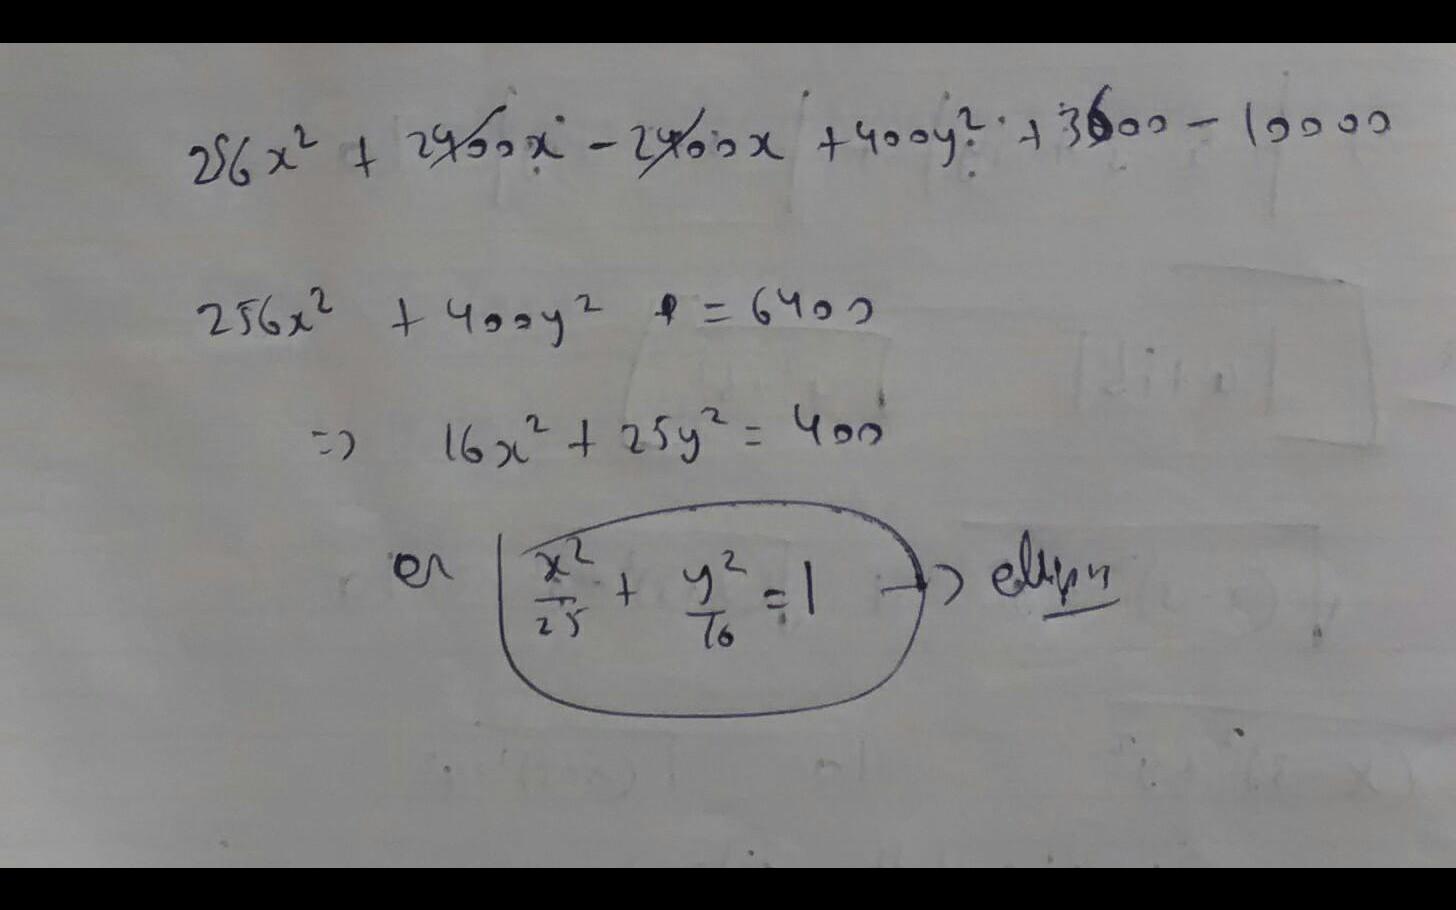 256x² + 2400x - 2400x + 400y² + 3600 - 10000
256x² + 400y² = 6400
=> 16x² + 25y² = 400
or x²/25 + y²/16 = 1 →